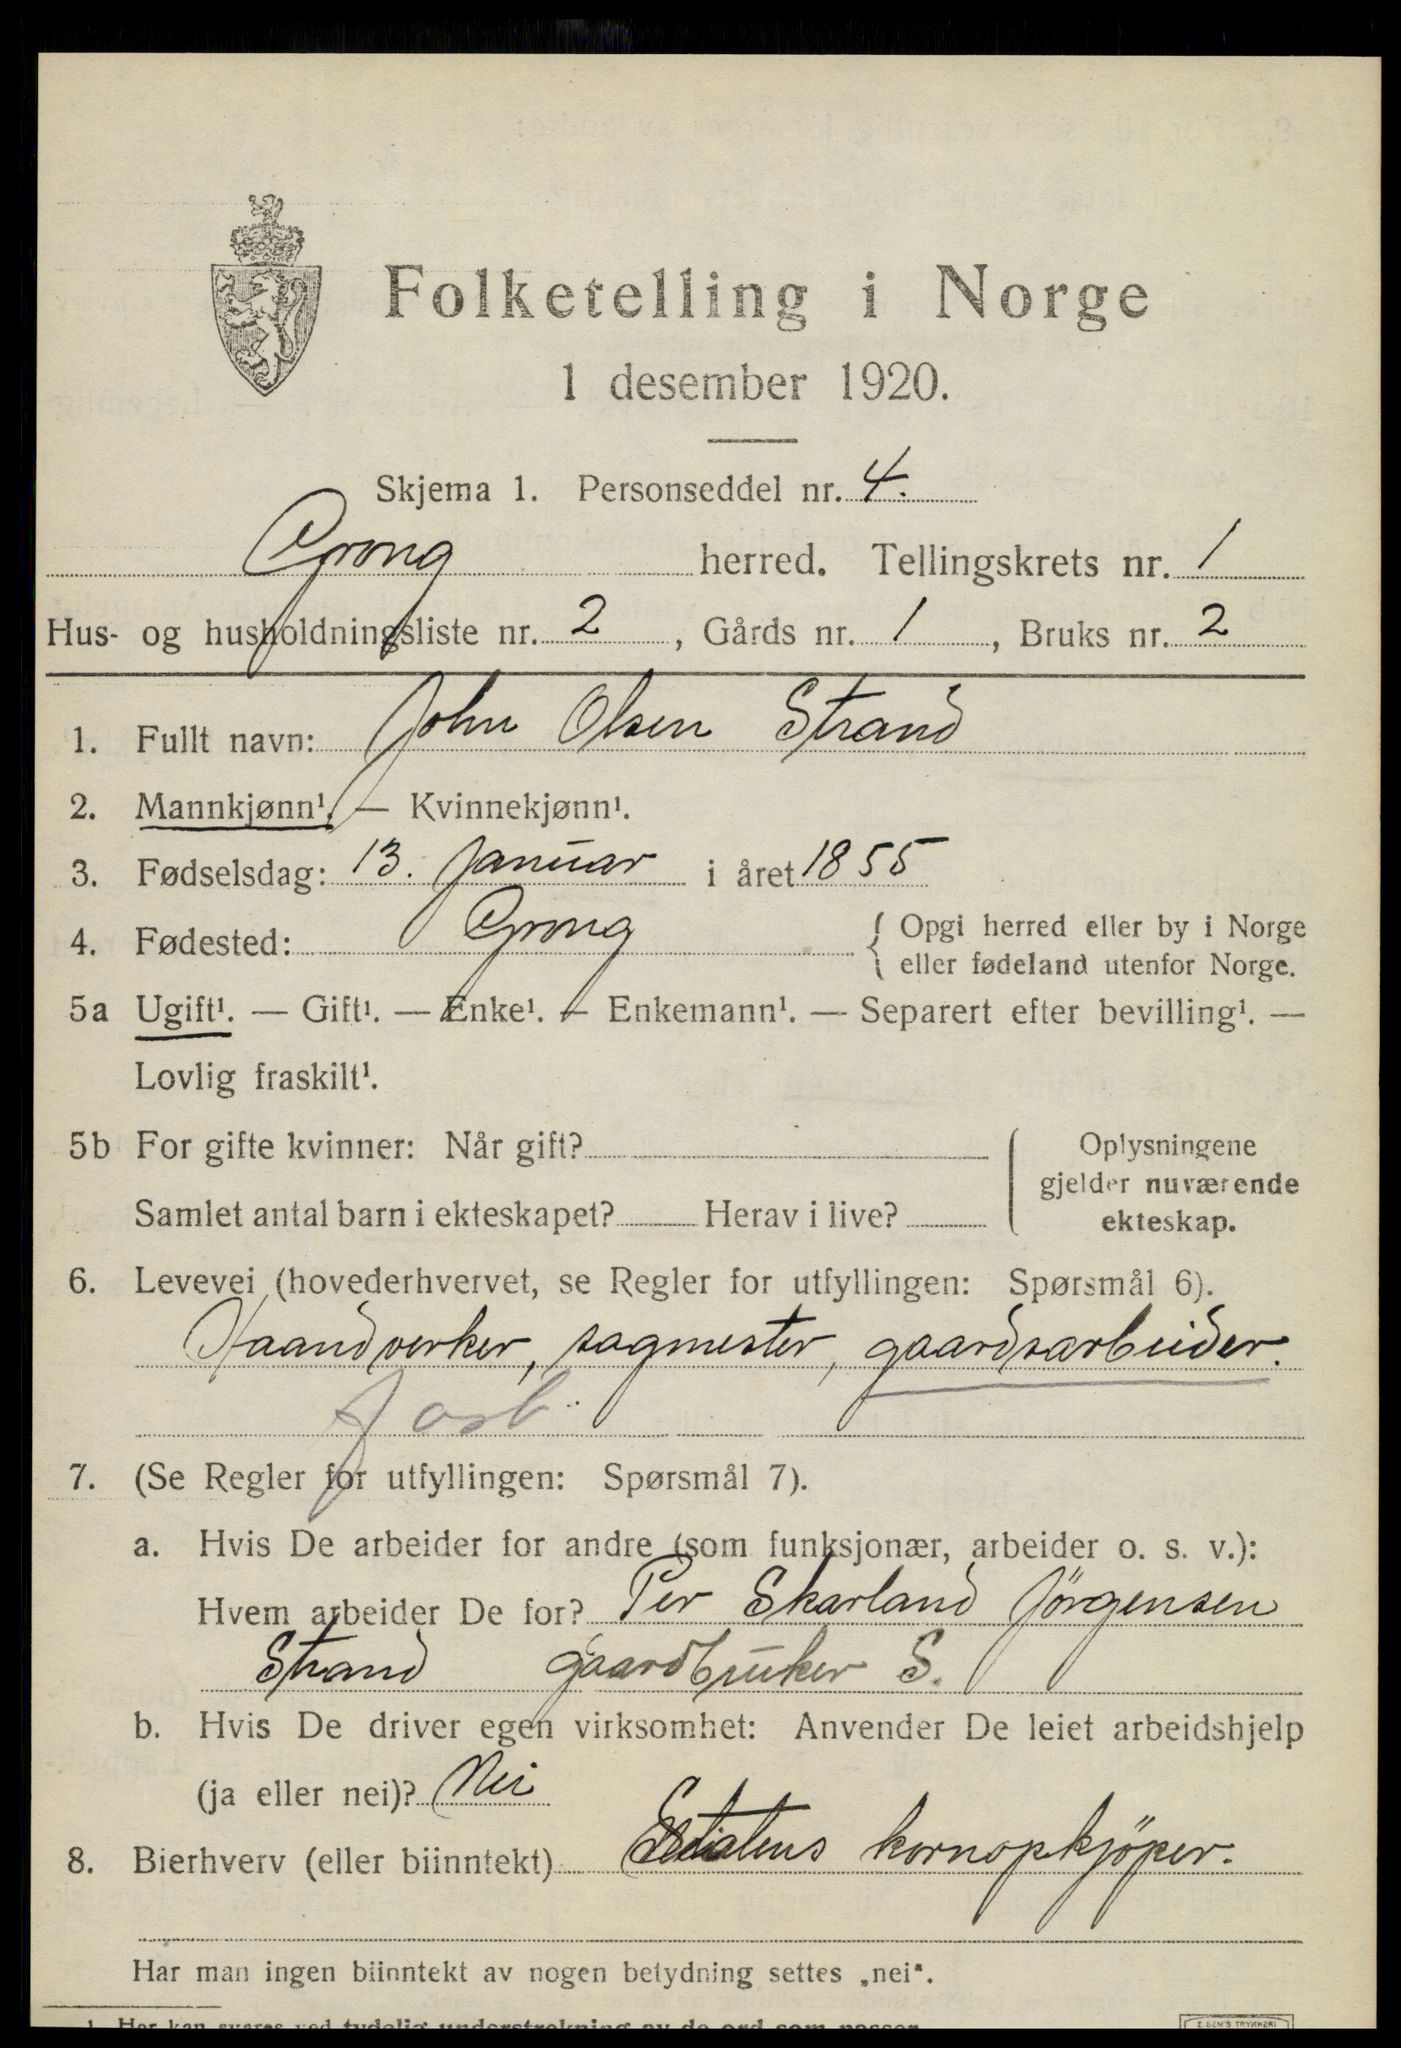 Folketelling i Norge
1 desember 1920.
Skjema 1. Personseddel nr. 4.
Grong herred. Tellingskrets nr. 1
Hus- og husholdningsliste nr. 2, Gårds nr. 1, Bruks nr. 2
1. Fullt navn: John Olsen Strand
2. Mannkjønn¹. — Kvinnekjønn¹.
3. Fødselsdag: 13. Januar i året 1855
4. Fødested: Grong { Opgi herred eller by i Norge
eller fødeland utenfor Norge.
5a Ugift¹. — Gift¹. — Enke¹. — Enkemann¹. — Separert efter bevilling¹. —
Lovlig fraskilt¹.
5b For gifte kvinner: Når gift?
Samlet antal barn i ekteskapet? Herav i live?
Oplysningene
gjelder nuværende
ekteskap.
6. Levevei (hovederhvervet, se Regler for utfyllingen: Spørsmål 6).
Haandverker, sagmester, gaardsarbeider.
7. (Se Regler for utfyllingen: Spørsmål 7).
a. Hvis De arbeider for andre (som funksjonær, arbeider o. s. v.):
Hvem arbeider De for? Per Skarland Jörgensen
Strand gaardbruker S.
b. Hvis De driver egen virksomhet: Anvender De leiet arbeidshjelp
(ja eller nei)? Nei
8. Bierhverv (eller biinntekt) Statens kornopkjöper.
Har man ingen biinntekt av nogen betydning settes „nei“.
1 Her kan svares ved tydelig understrekning av de ord som passer.